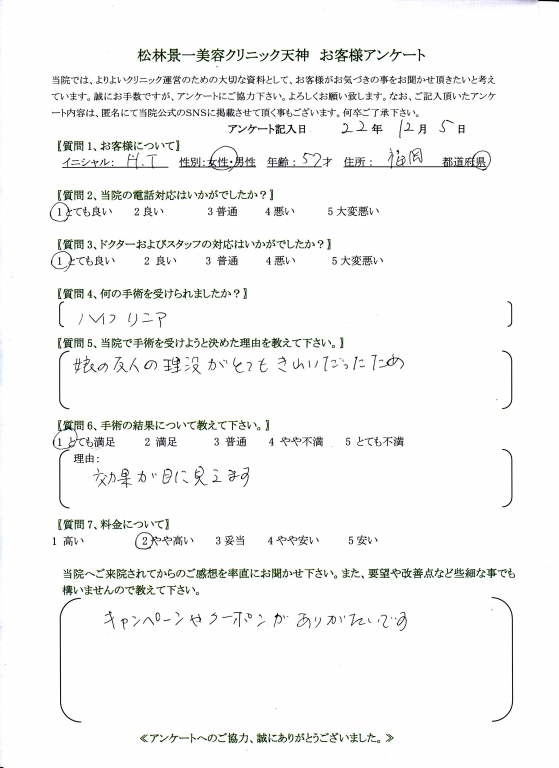 松林景一美容クリニック天神　お客様アンケート
当院では、よりよいクリニック運営のための大切な資料として、お客様がお気づきの事をお聞かせ頂きたいと考え
ています。誠にお手数ですが、アンケートにご協力下さい。よろしくお願い致します。なお、ご記入頂いたアンケ
ート内容は、匿名にて当院公式のSNSに掲載させて頂く事もございます。何卒ご了承下さい。
アンケート記入日　22年　12月　5日
【質問1、お客様について】
イニシャル：　H.T　性別：女性・男性　年齢：57才　住所：　福岡　都道府県
【質問2、当院の電話対応はいかがでしたか？】
1 とても良い　2 良い　3 普通　4 悪い　5 大変悪い
【質問3、ドクターおよびスタッフの対応はいかがでしたか？】
1 とても良い　2 良い　3 普通　4 悪い　5 大変悪い
【質問4、何の手術を受けられましたか？】
ハイフ リニア
【質問5、当院で手術を受けようと決めた理由を教えて下さい。】
娘の友人の埋没がとてもきれいだったため
【質問6、手術の結果について教えて下さい。】
1 とても満足　2 満足　3 普通　4 やや不満　5 とても不満
理由：
効果が目に見えます
【質問7、料金について】
1 高い　2 やや高い　3 妥当　4 やや安い　5 安い
当院へご来院されてからのご感想を率直にお聞かせ下さい。また、要望や改善点など些細な事でも
構いませんので教えて下さい。
キャンペーンやクーポンがありがたいです
≪アンケートへのご協力、誠にありがとうございました。≫